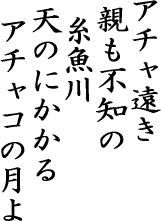 アチャ遠き
親も不知の
糸魚川
天のにかかる
アチャコの月よ